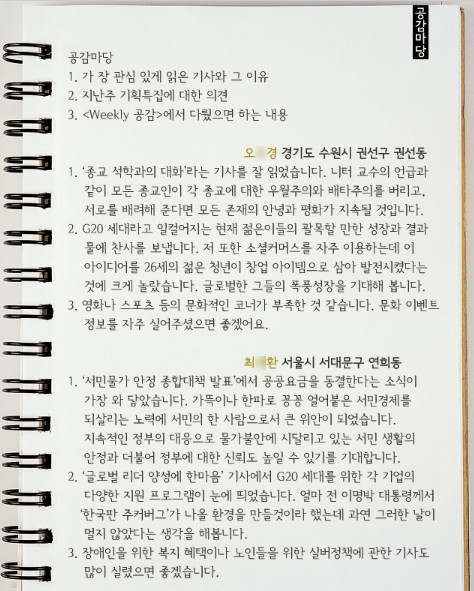 공감마당
공감마당
1. 가 장 관심 있게 읽은 기사와 그 이유
2. 지난주 기획특집에 대한 의견
3. <Weekly 공감>에서 다뤘으면 하는 내용
오 경 경기도 수원시 권선구 권선동
1. ‘종교 석학과의 대화’라는 기사를 잘 읽었습니다. 니터 교수의 언급과
같이 모든 종교인이 각 종교에 대한 우월주의와 배타주의를 버리고,
서로를 배려해 준다면 모든 존재의 안녕과 평화가 지속될 것입니다.
2. G20 세대라고 일컬어지는 현재 젊은이들의 괄목할 만한 성장과 결과
물에 찬사를 보냅니다. 저 또한 소셜커머스를 자주 이용하는데 이
아이디어를 26세의 젊은 청년이 창업 아이템으로 삼아 발전시켰다는
것에 크게 놀랐습니다. 글로벌한 그들의 폭풍성장을 기대해 봅니다.
3. 영화나 스포츠 등의 문화적인 코너가 부족한 것 같습니다. 문화 이벤트
정보를 자주 실어주셨으면 좋겠어요.
최 환 서울시 서대문구 연희동
1. ‘서민물가 안정 종합대책 발표’에서 공공요금을 동결한다는 소식이
가장 와 닿았습니다. 가뜩이나 한파로 꽁꽁 얼어붙은 서민경제를
되살리는 노력에 서민의 한 사람으로서 큰 위안이 되었습니다.
지속적인 정부의 대응으로 물가불안에 시달리고 있는 서민 생활의
안정과 더불어 정부에 대한 신뢰도 높일 수 있기를 기대합니다.
2. ‘글로벌 리더 양성에 한마음’ 기사에서 G20 세대를 위한 각 기업의
다양한 지원 프로그램이 눈에 띄었습니다. 얼마 전 이명박 대통령께서
‘한국판 주커버그’가 나올 환경을 만들것이라 했는데 과연 그러한 날이
멀지 않았다는 생각을 해봅니다.
3. 장애인을 위한 복지 혜택이나 노인들을 위한 실버정책에 관한 기사도
많이 실렸으면 좋겠습니다.